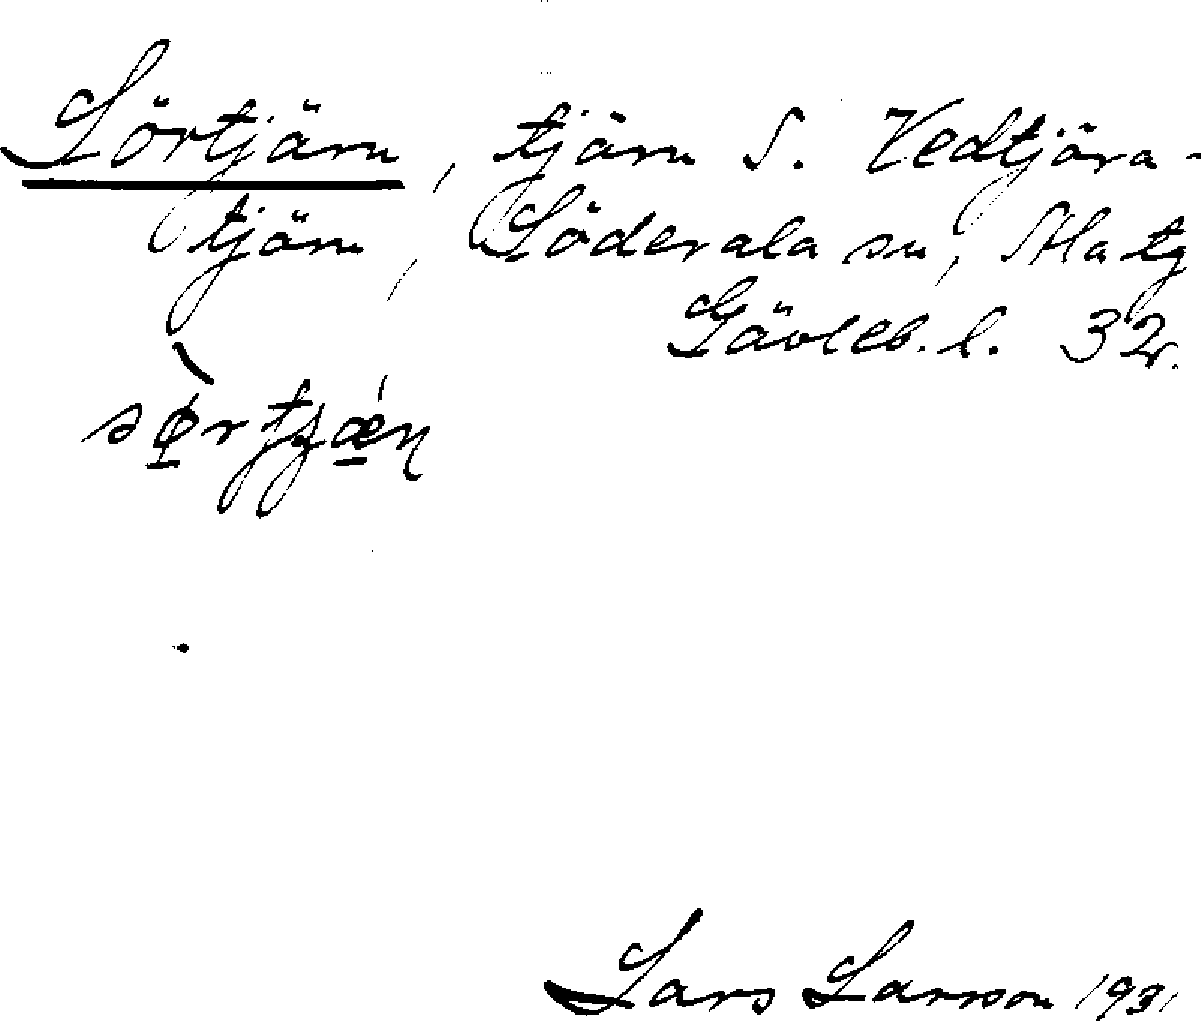 Sörtjärn, tjärn S. Vedtjära-
tjärn, Söderala sn, Ala tg
Gävleb. l. 32.
Lars Larsson 1931